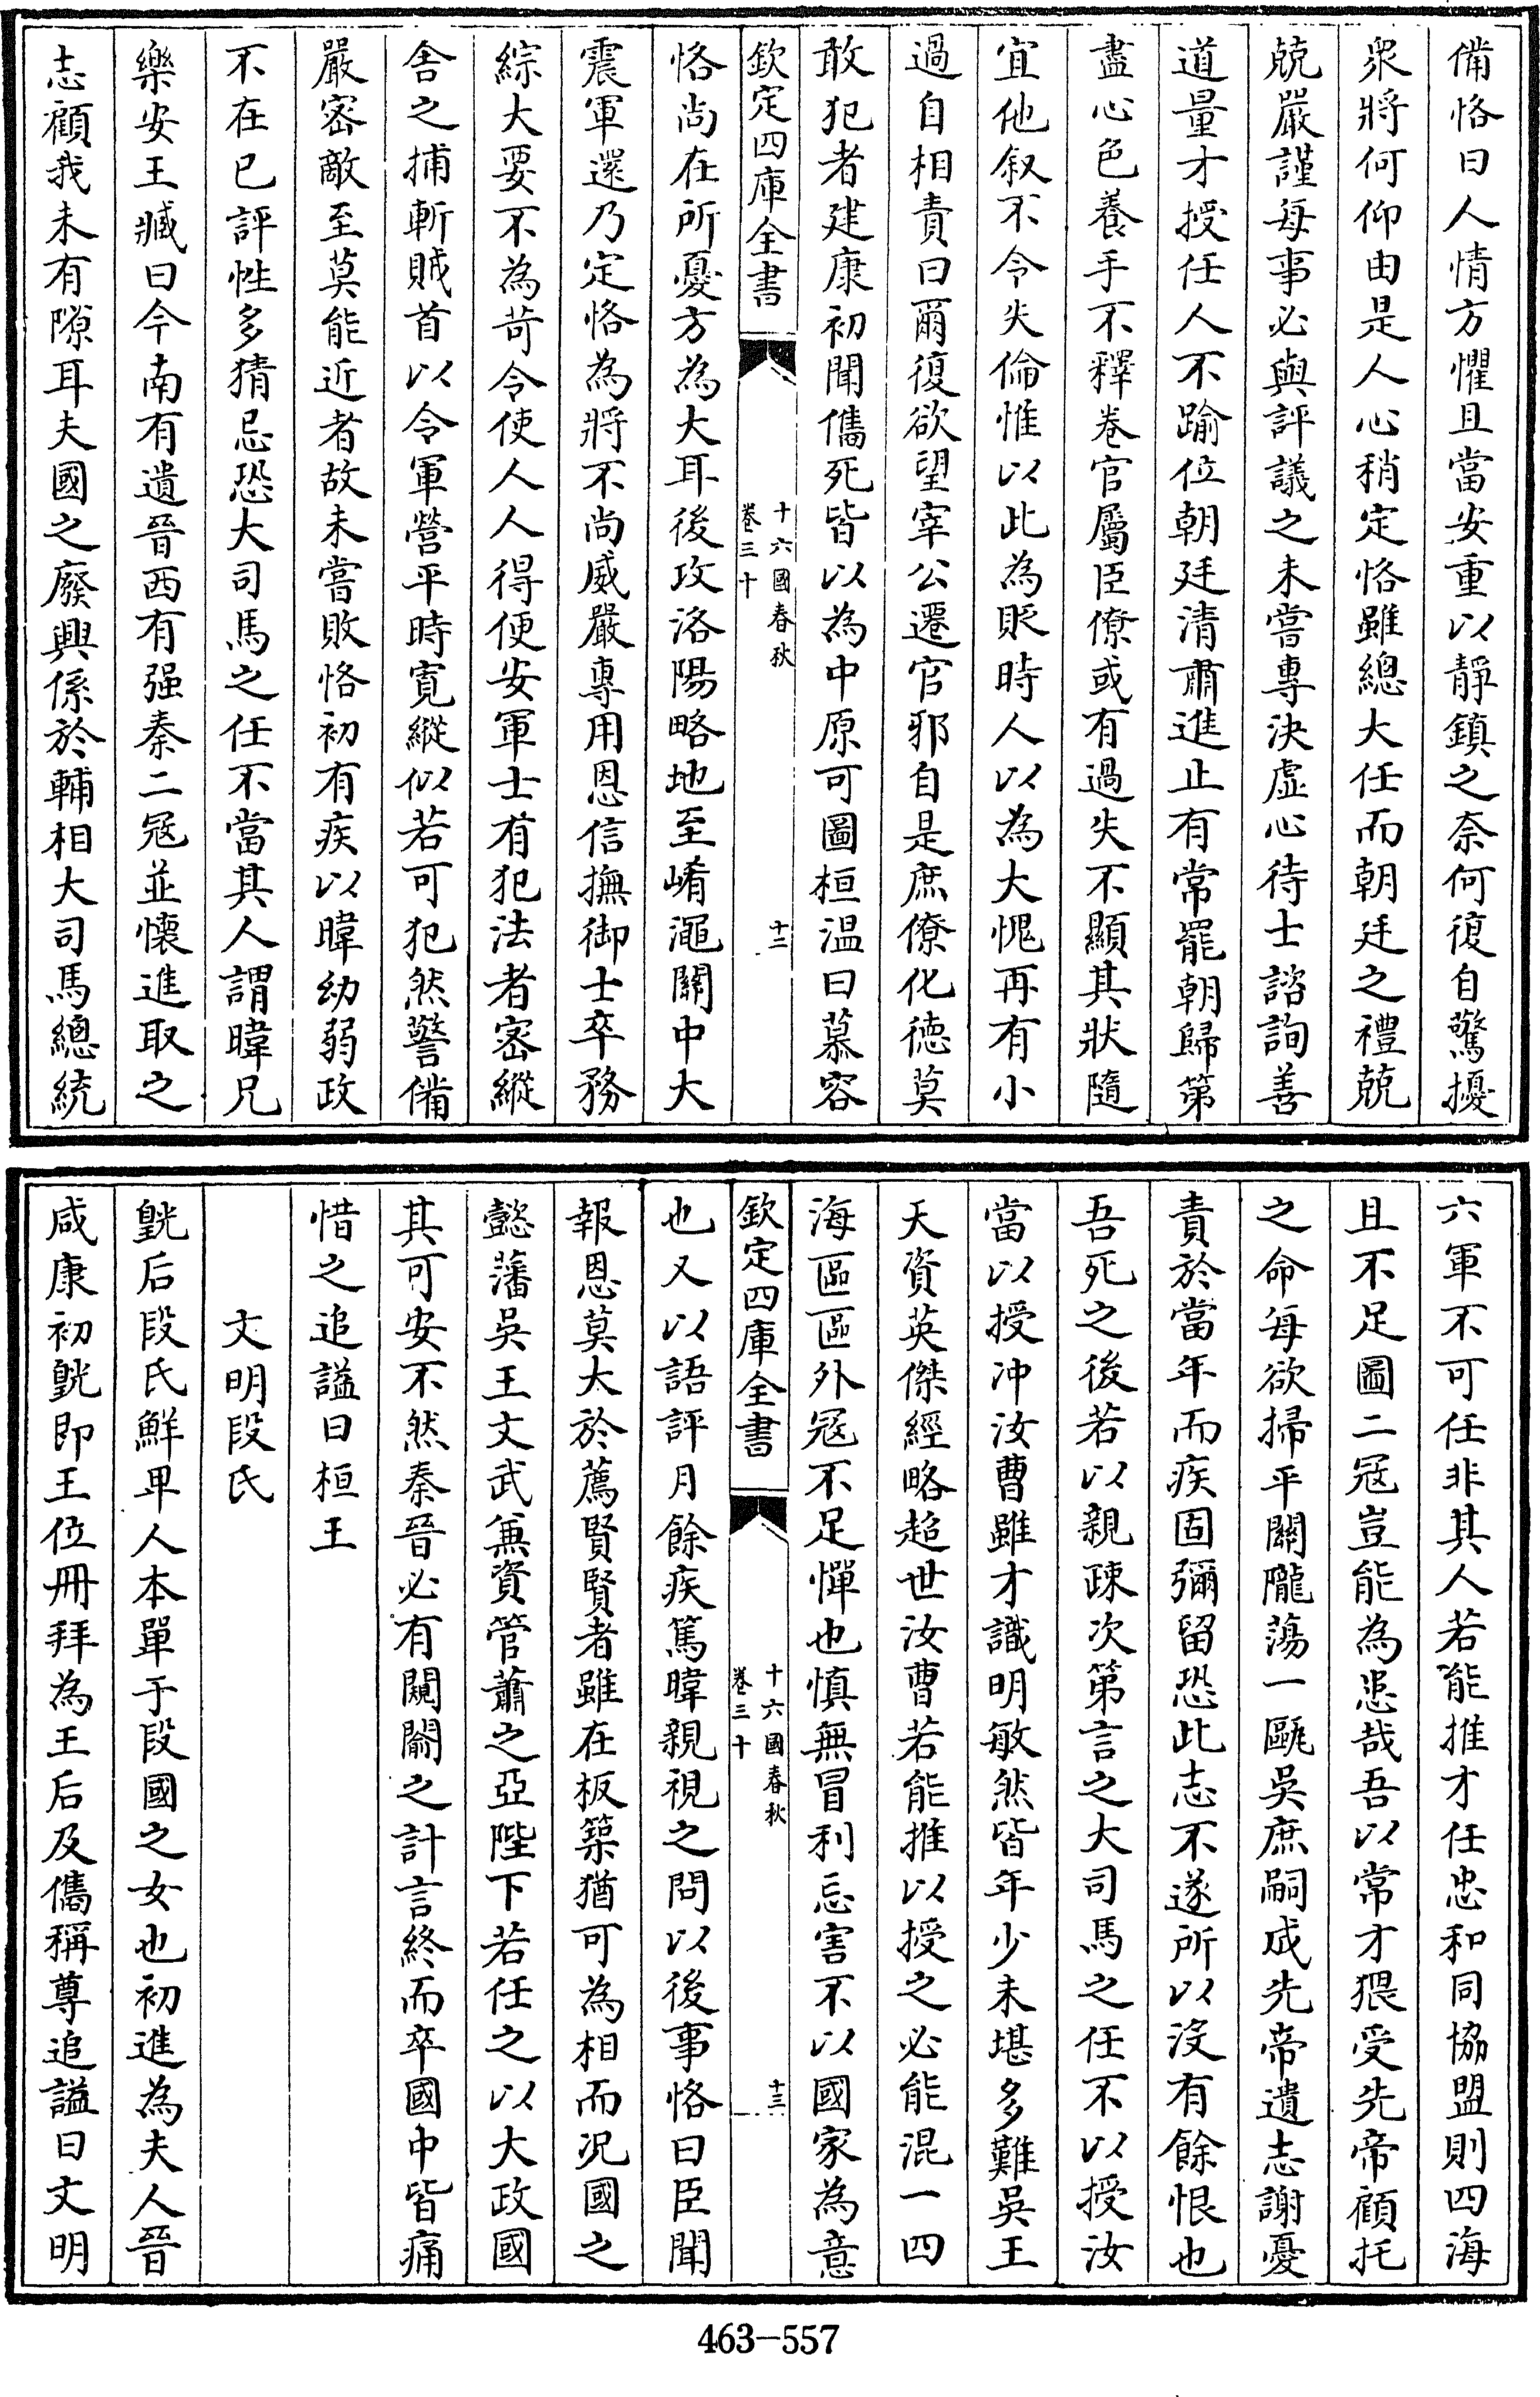 備恪曰人情方懼且當安重以靜鎮之奈何復自驚擾
衆將何仰由是人心稍定恪雖總大任而朝廷之禮兢
兢嚴謹每事必與評議之未嘗專決虚心待士諮詢善
道量才授任人不踰位朝廷清肅進止有常罷朝歸第
盡心色養手不釋卷官屬臣僚或有過失不顯其狀隨
宜他叙不令失倫惟以此為貶時人以為大愧再有小
過自相責曰爾復欲望宰公遷官邪自是庶僚化德莫
敢犯者建康初聞儁死皆以為中原可圖桓温曰慕容
欽定四庫全書
十六國春秋
卷三十
十二
恪尚在所憂方為大耳後攻洛陽略地至崤澠關中大
震軍還乃定恪為將不尚威嚴專用恩信撫御士卒務
綜大要不為苛令使人人得便安軍士有犯法者密縱
舎之捕斬賊首以令軍營平時寛縱似若可犯然警備
嚴密敵至莫能近者故未嘗敗恪初有疾以暐幼弱政
不在已評性多猜忌恐大司馬之任不當其人謂暐兄
樂安王臧曰今南有遺晉西有强秦二冦並懐進取之
志顧我未有隙耳夫國之廢興係於輔相大司馬總統
六軍不可任非其人若能推才任忠和同協盟則四海
且不足圖二冦豈能為患哉吾以常才猥受先帝顧托
之命每欲掃平關隴蕩一甌吳庶嗣成先帝遺志謝憂
責於當年而疾固彌留恐此志不遂所以沒有餘恨也
吾死之後若以親疎次第言之大司馬之任不以授汝
當以授冲汝曹雖才識明敏然皆年少未堪多難吳王
天資英傑經略超世汝曹若能推以授之必能混一四
海區區外冦不足憚也慎無冒利忘害不以國家為意
欽定四庫全書
十六國春秋
卷三十
十三
也又以語評月餘疾篤暐親視之問以後事恪曰臣聞
報恩莫大於薦賢賢者雖在板築猶可為相而况國之
懿藩吳王文武兼資管蕭之亞陛下若任之以大政國
其可安不然秦晉必有闚闟之計言終而卒國中皆痛
惜之追謚曰桓王
文明段氏
皝后段氏鮮卑人本單于段國之女也初進為夫人晉
咸康初皝即王位冊拜為王后及儁稱尊追謚曰文明
463-557